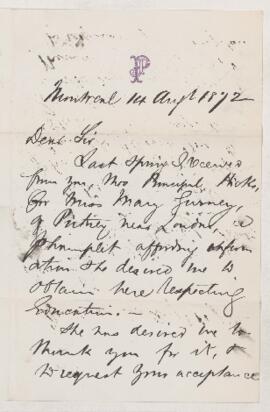 P
Montreal 14 Augt 1872
Dear Sir
Last Spring I received
from you, thro Principal Hicks,
for Miss Mary Gurney
of Putney, near London, a
Pamphlet affording inform
ation she desired me to
obtain here respecting
Education. —
She has desired me to
thank you for it, &
to request your acceptance